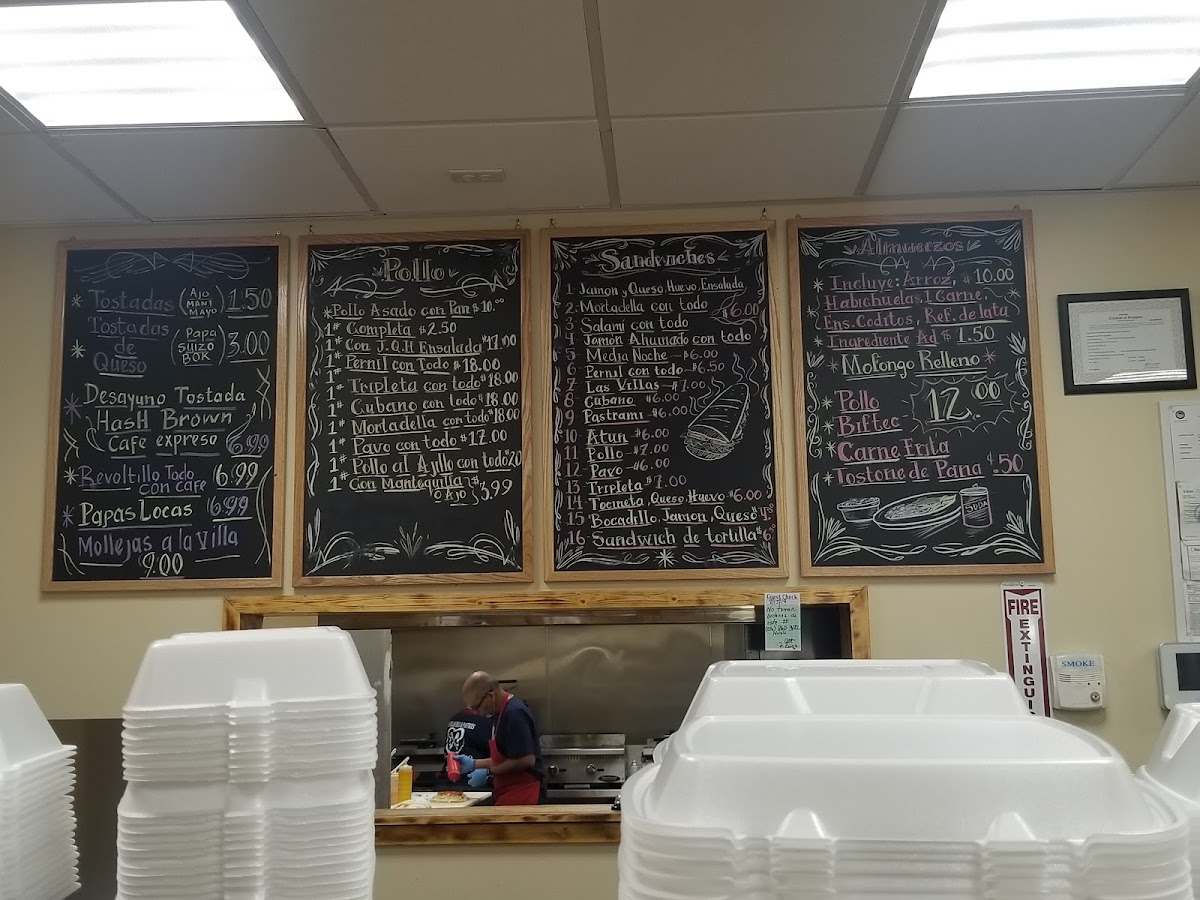 Tostadas (AJO MANT MAYO) 1.50
Tostadas
de
Queso
(Papa SUIZO BOK) 3.00
Desayuno Tostada
HasH Brown
Cafe expreso 6.99
Revoltillo Todo
con cafe 6.99
Papas Locas 6.99
Mollejas a la Villa
9.00
Pollo
Pollo Asado con Pan $10.00
1# Completa $2.50
1# Con J.Q.H Ensalada $17.00
1# Pernil con Todo $18.00
1# Tripleta con todo $18.00
1# Cubano con todo $18.00
1# Mortadella con todo $18.00
1# Pavo con todo $17.00
1# Pollo al Ajllo con todo $20
1# Con Mantequilla o Ajo $3.99
Sandwiches
1 Jamon y Queso, Huevo, Ensalada
2. Mortadella con todo
3 Salami con todo $6.00
4 Jamon Ahumado con todo
5 Media Noche - $6.00
6 Pernil con todo - $6.50
7 Las Villas - $7.00
8 Cubano - $6.00
9 Pastrami - $6.00
10 Atun - $6.00
11 Pollo - $7.00
12 Pavo - $6.00
13 Tripleta $7.00
14 Tocineta, Queso, Huevo - $6.00
15 Bocadillo, Jamon, Queso
16 Sandwich de tortilla
Almuerzos
Incluye: Arroz, $10.00
Habichuelas, 1 Carne,
Ens. Coditos, Ref. de lata
Ingrediente Ad $1.50
Mofongo Relleno
Pollo
Biftec
Carne Frita
12.00
Tostone de Pana $.50
SODA
Guest Check
No tomar
ordenes de
este #
FIRE
EXTINGUI
SMOKE